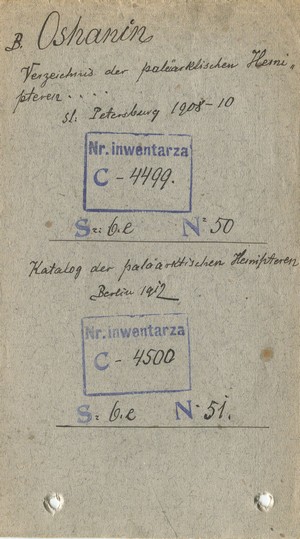 B. Oshanin
Verzeichnis der paläarktischen Hemi=
pteren....
St. Petersburg 1908-10
Nr. inwentarza
C - 4499.
S=: 6.e N= 50
Katalog der paläarktischen Hemipteren
Berlin 1912
Nr. inwentarza
C - 4500
S= 6.e N= 51.